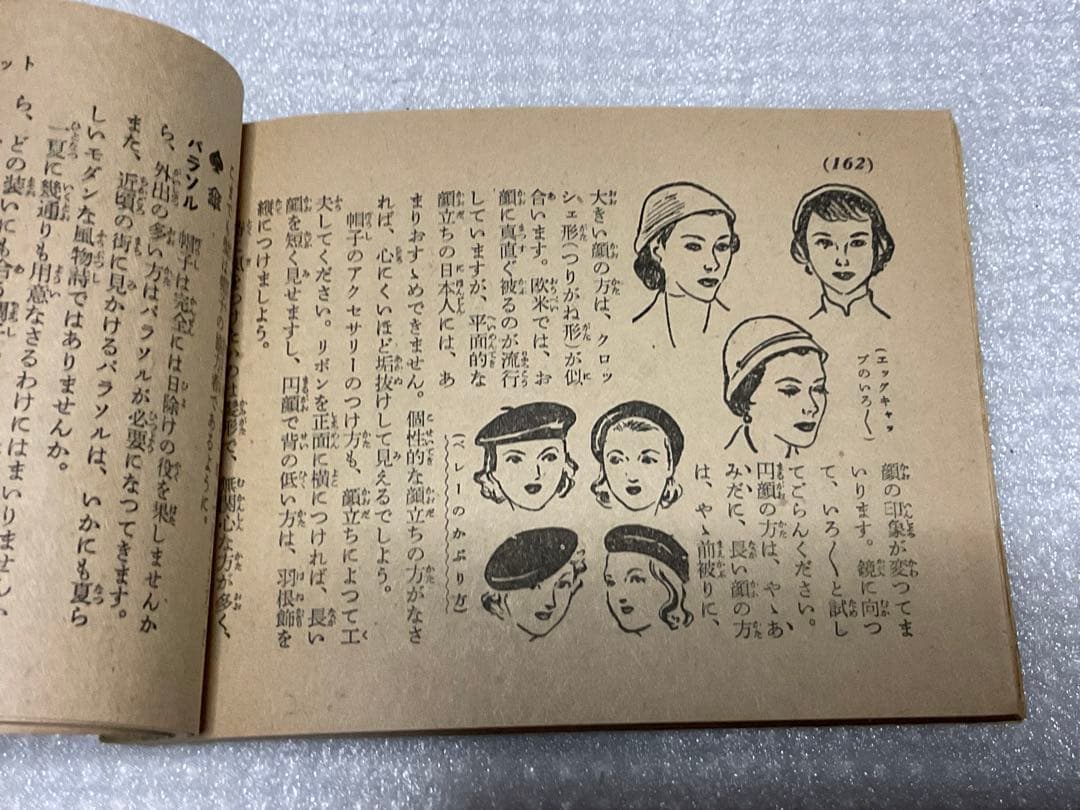 (162)
顔の印象が変つてま
いります。鏡に向つ
て、いろ〱と試し
てごらんください。
円顔の方は、やゝあ
みだに、長い顔の方
は、やゝ前被りに、
(エッグキャッ
プのいろ〱)
大きい顔の方は、クロッ
シェ形(つりがね形)が似
合います。欧米では、お
顔に真直ぐ被るのが流行
していますが、平面的な
顔立ちの日本人には、あ
まりおすゝめできません。個性的な顔立ちの方がなさ
れば、心にくいほど垢抜けして見えるでしよう。
(ベレーのかぶり方)
帽子のアクセサリーのつけ方も、顔立ちによつて工
夫してください。リボンを正面に横につければ、長い
顔を短く見せますし、円顔で背の低い方は、羽根飾を
縦につけましよう。
無関心な方が多く、
傘
パラソル
帽子は完全には日除けの役を果しませんか
ら、外出の多い方はパラソルが必要になつてきます。
また、近頃の街に見かけるパラソルは、いかにも夏ら
しいモダンな風物詩ではありませんか。
一夏に幾通りも用意なさるわけにはまいりません
ら、どの装いにも合う
ット